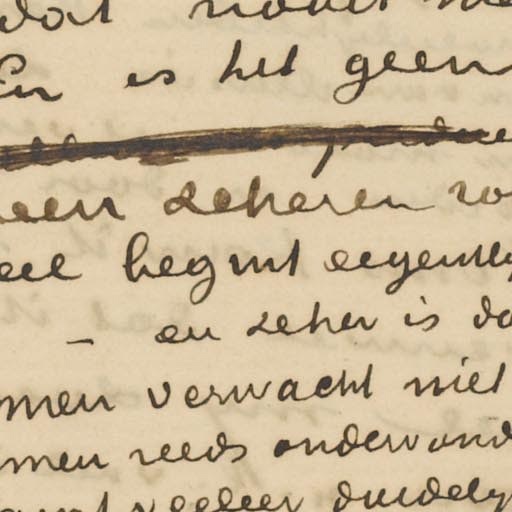 dat
En is het geen
een zekeren
eel begint eigently
- en zeker is da
men verwacht niet
men reeds ondervond
veeleer duidely